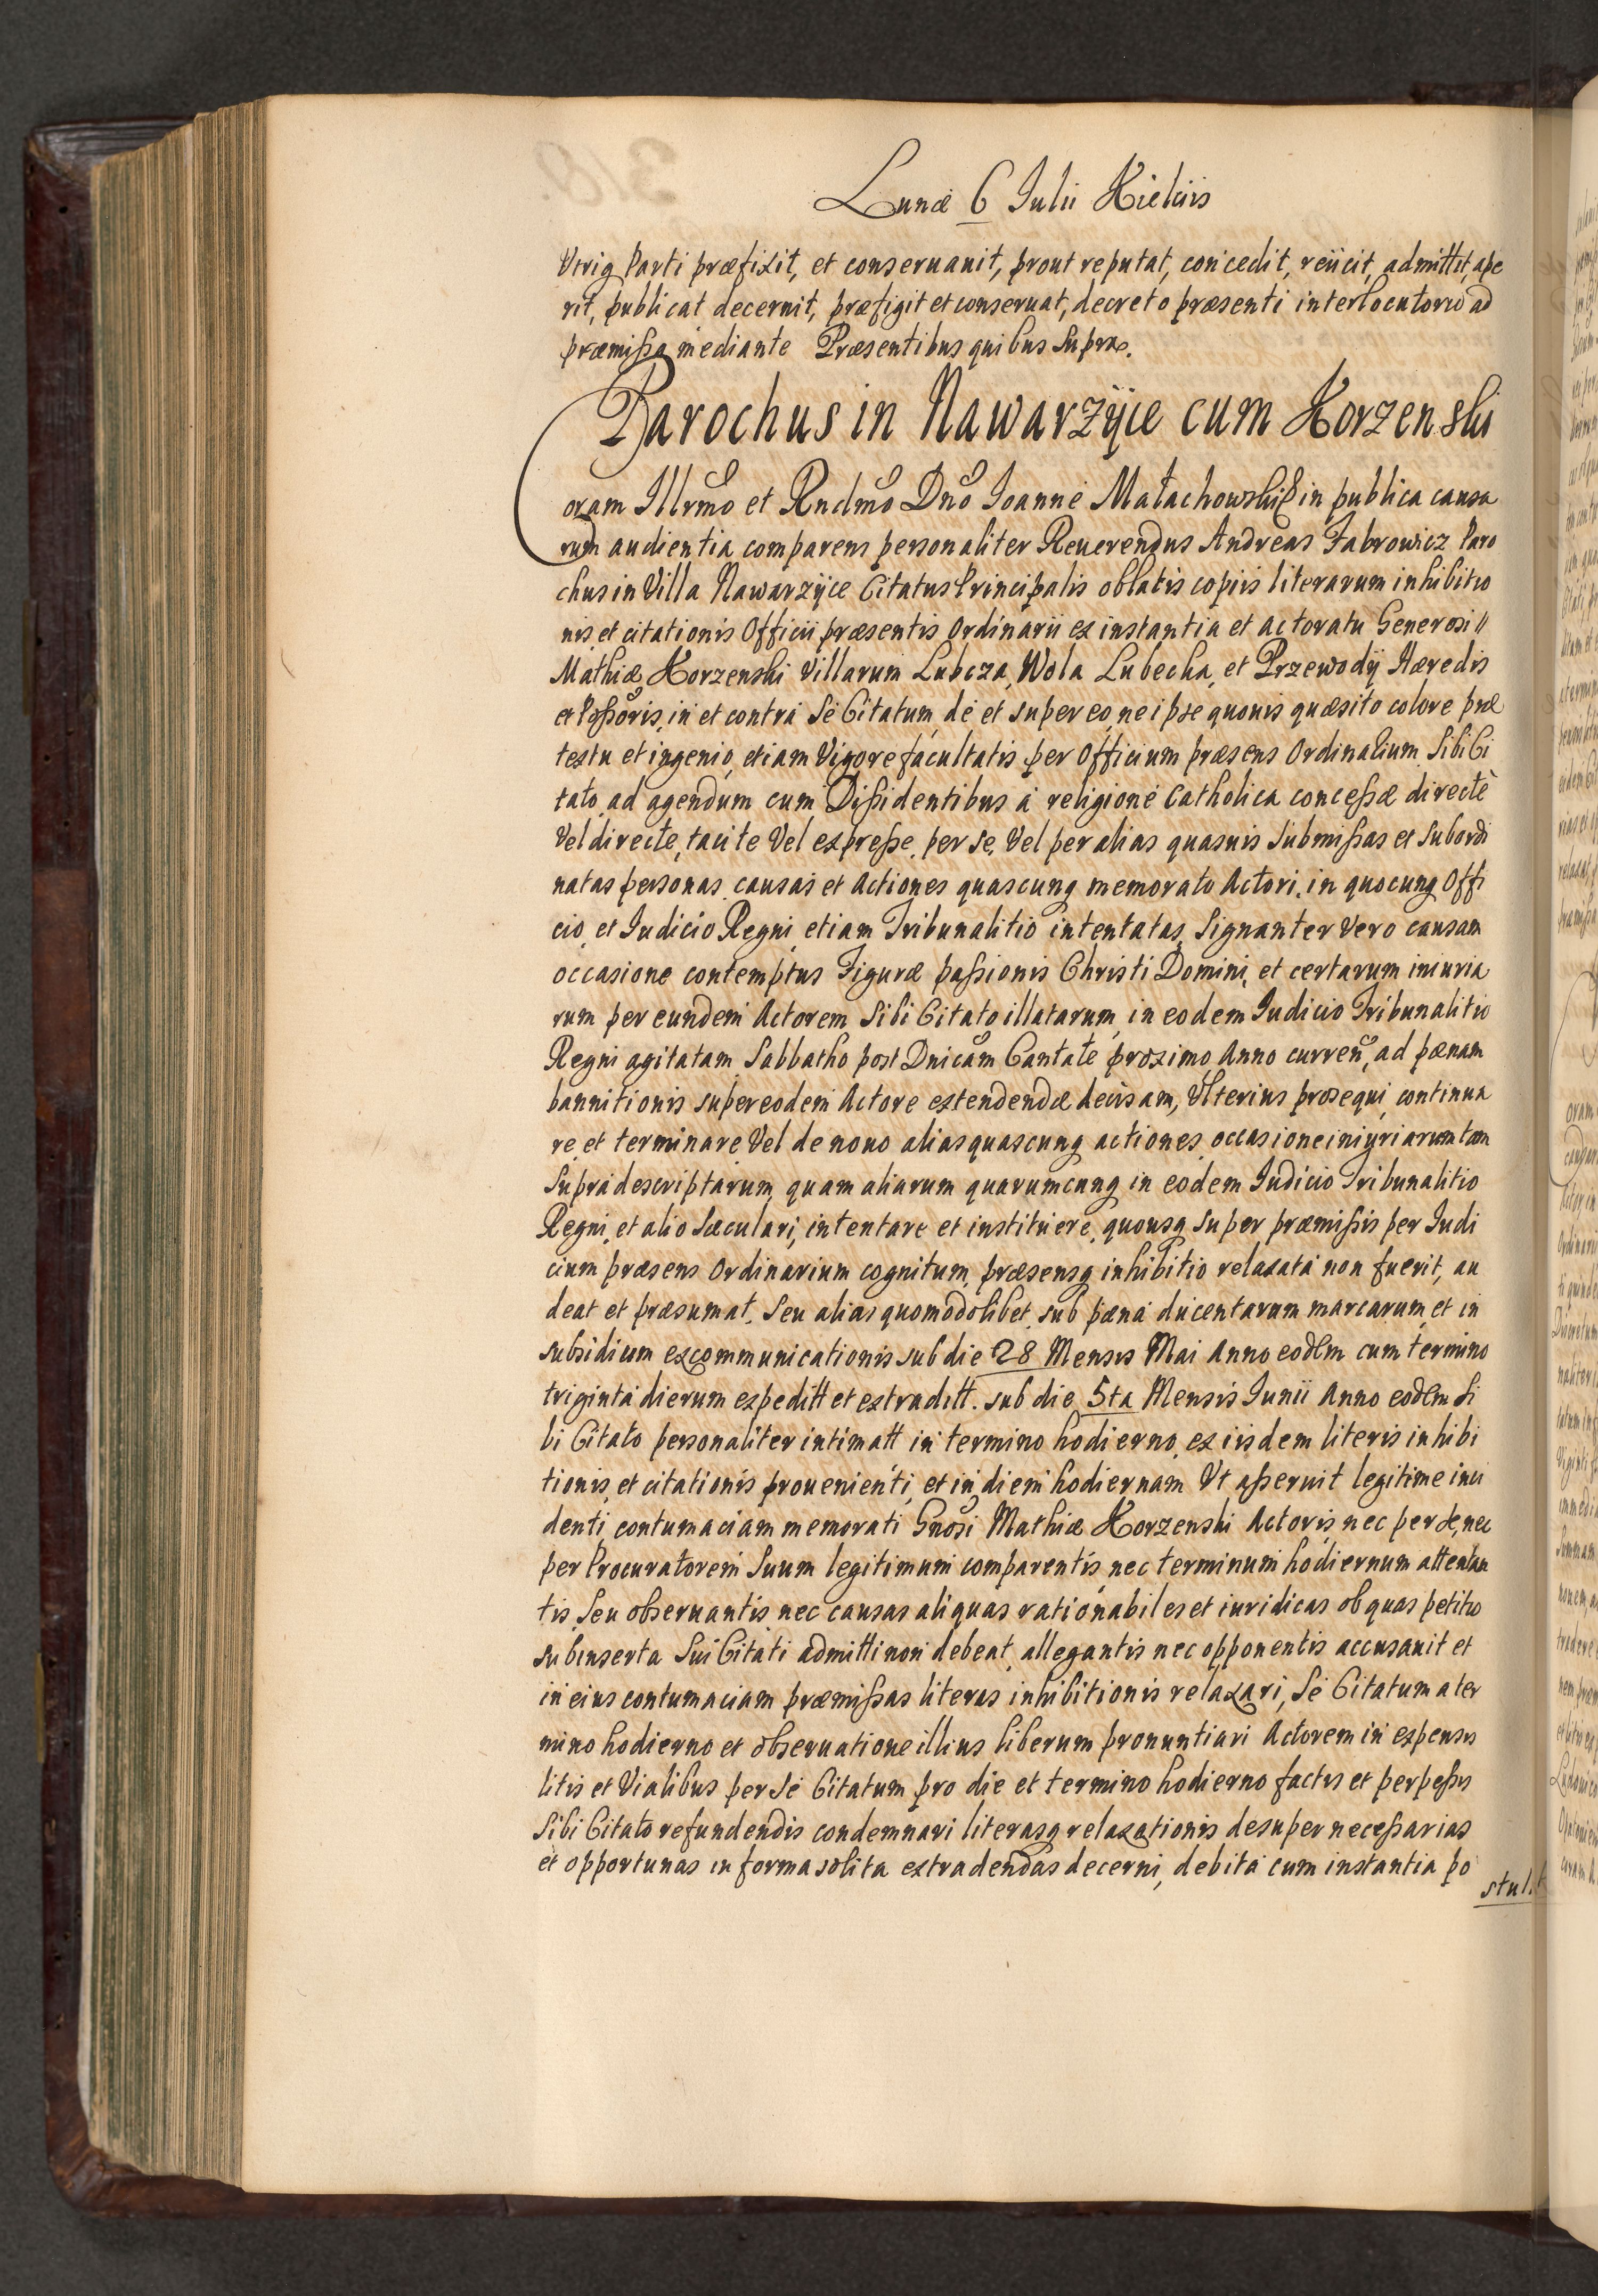 Lunæ 6 Julii Kielciis
Vtriq Parti præfixit, et conseruauit, prout reputat, concedit, reiicit, admittit, ape
rit, publicat decernit, præfigit et conseruat, decreto præsenti interlocutorio ad
præmißa mediante Præsentibus quibus supra.
Parochus in Nawarzÿce cum Korzenski
Coram Illrmo et Rndmo Dno Ioanne Małachowski in publica causa
rum audientia comparens personaliter Reuerendus Andreas Fabrowicz Paro
chus in Villa Nawarzÿce Citatus Principalis oblatis copiis literarum inhibitio
nis et citationis Officii præsentis Ordinarii ex instantia et actoratu Generosi
Mathiæ Korzenski Villarum Lubcza, Wola Lubecka, et Przewodÿ Hæredis
et Poßoris, in et contra Se Citatum, de et super eo, ne ipse quouis quæsito colore præ
textu et ingenio, etiam Vigore facultatis per Officium præsens Ordinarium Sibi Ci
tato ad agendum cum Dißidentibus a religione Catholica conceßæ directe
Vel directe, tacite Vel expreße, per se, Vel per alias quasuis Submißas et Subordi
natas personas causas et Actiones quascunq memorato Actori, in quocunq Offi
cio, et Iudicio Regni etiam Tribunalitio intentatas, Signanter Vero causam
occasione contemptus Figuræ paßionis Christi Domini, et certarum iniuria
rum per eundem Actorem Sibi Citato illatarum, in eodem Iudicio Tribunalitio
Regni agitatam Sabbatho post Dnicam Cantate proximo Anno curren, ad pænam
bannitionis super eodem Actore extendendæ decisam, Vlterius prosequi, continua
re et terminare Vel de nouo alias quascunq actiones, occasione iniuriarum tam
Supra descriptarum, quam aliarum quarumcunq in eodem Iudicio Tribunalitio
Regni, et alio Sæculari, intentare et instituere, quousq super præmißis per Iudi
cium præsens Ordinarium cognitum, præsensq inhibitio relaxata non fuerit, au
deat et præsumat. Seu alias quomodolibet, sub pæna ducentarum marcarum, et in
subsidium excommunicationis sub die 28 Mensis Mai Anno eodem cum termino
triginta dierum expeditt et extraditt. sub die 5ta Mensis Iunii Anno eodem Si
bi Citato personaliter intimatt in termino hodierno, ex iisdem literis inhibi
tionis, et citationis prouenienti, et in diem hodiernam Vt aßeruit legitime inci
denti, contumaciam memorati Gnosi Mathiæ Korzenski Actoris, nec per se, nec
per Procuratorem Suum legitimum comparentis, nec terminum hodiernum attentan
tis, Seu obseruantis, nec causas aliquas rationabiles et iuridicas ob quas petitio
subinserta Sui Citati admitti non debeat, allegantis nec opponentis accusauit et
in eius contumaciam præmißas literas inhibitionis relaxari, Se Citatum a ter
mino hodierno et obseruatione illius liberum pronuntiari Actorem in expensis
litis et Vialibus per Se Citatum pro die et termino hodierno factis et perpeßis
Sibi Citato refundendis condemnari literasq relaxationis desuper neceßarias
et opportunas in forma solita extradendas decerni, debita cum instantia po
stulit